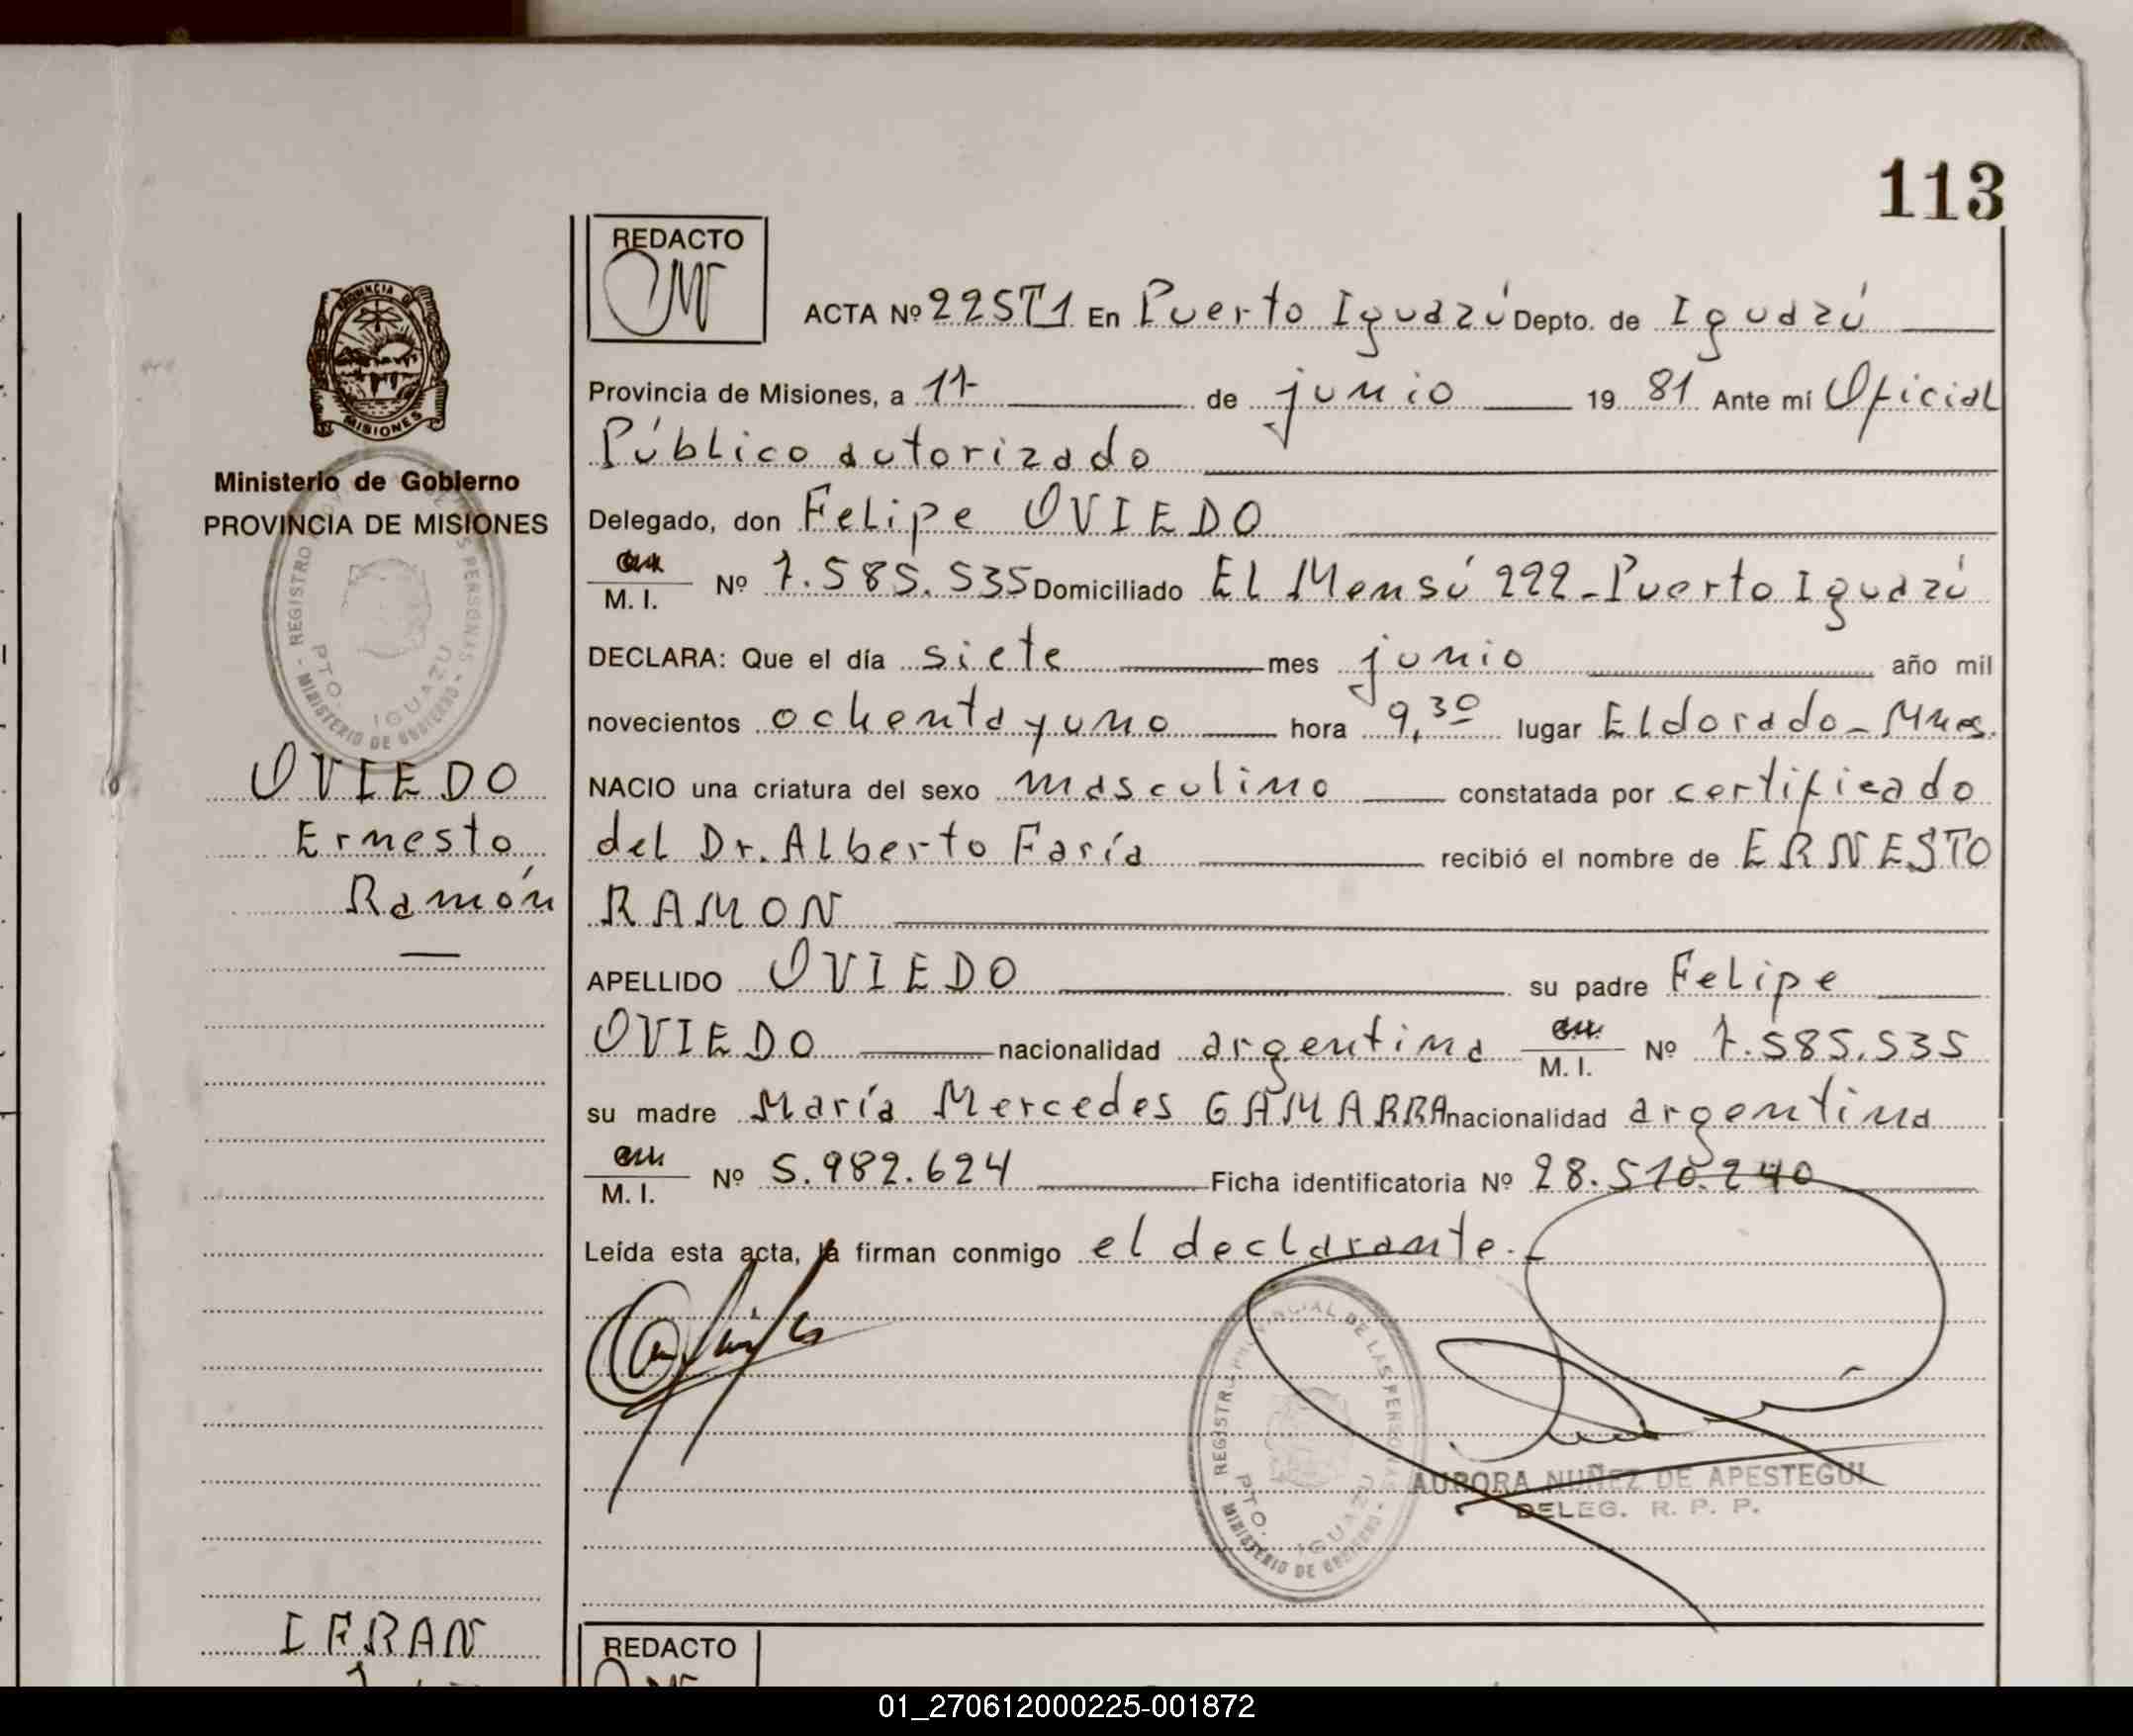 113
REDACTO
ACTA Nº 225T1 En Puerto Iguazú Depto. de Iguazú
Provincia de Misiones, a 11- de junio 19 81 Ante mi Oficial
Público autorizado
Delegado, don Felipe OVIEDO
M. I. Nº 7.585.535 Domiciliado El Mensú 222-Puerto Iguazú
DECLARA: Que el día siete mes junio año mil
novecientos ochenta y uno hora 9,30 lugar Eldorado-Mnes.
NACIO una criatura del sexo masculino constatada por certificado
del Dr. Alberto Faría recibió el nombre de ERNESTO
RAMON
APELLIDO OVIEDO su padre Felipe
OVIEDO nacionalidad argentina M. I. Nº 7.585.535
su madre María Mercedes GAMARRA nacionalidad argentina
M. I. Nº 5.982.624 Ficha identificatoria Nº 28.510.240
Leída esta acta, la firman conmigo el declarante.-
AURORA NUÑEZ DE APESTEGUI
DELEG. R. P. P.
REGISTRO PROVINCIAL DE LAS PERSONAS
PTO. IGUAZU
MINISTERIO DE GOBIERNO
PROVINCIA DE
MISIONES
Ministerio de Gobierno
PROVINCIA DE MISIONES
REGISTRO DE LAS PERSONAS
PTO. IGUAZU
MINISTERIO DE GOBIERNO
OVIEDO
Ernesto
Ramón
REDACTO
01_270612000225-001872